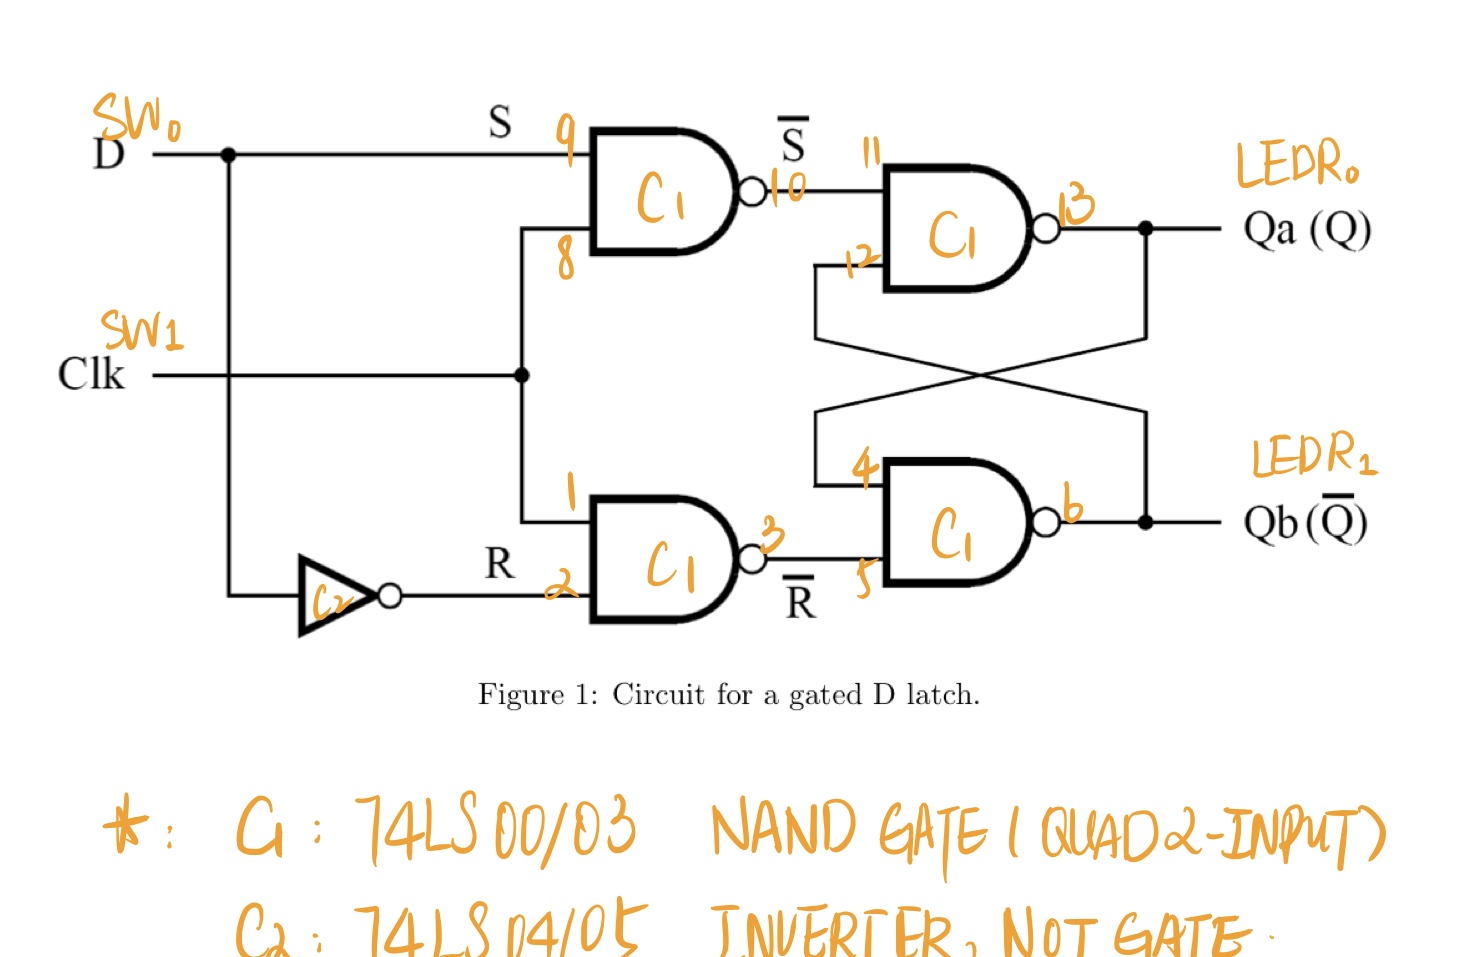 SW₀
D
S
9
C1
8
S̅
10
11
C1
12
13
LEDR₀
Qa (Q)
SW1
Clk
1
R
2
C1
3
R̅
C2
4
C1
5
6
LEDR₁
Qb (Q̅)
Figure 1: Circuit for a gated D latch.
*: C1 : 74LS 00/03 NAND GATE ( QUAD 2-INPUT)
C2 : 74LS 04/05 INVERTER, NOT GATE.